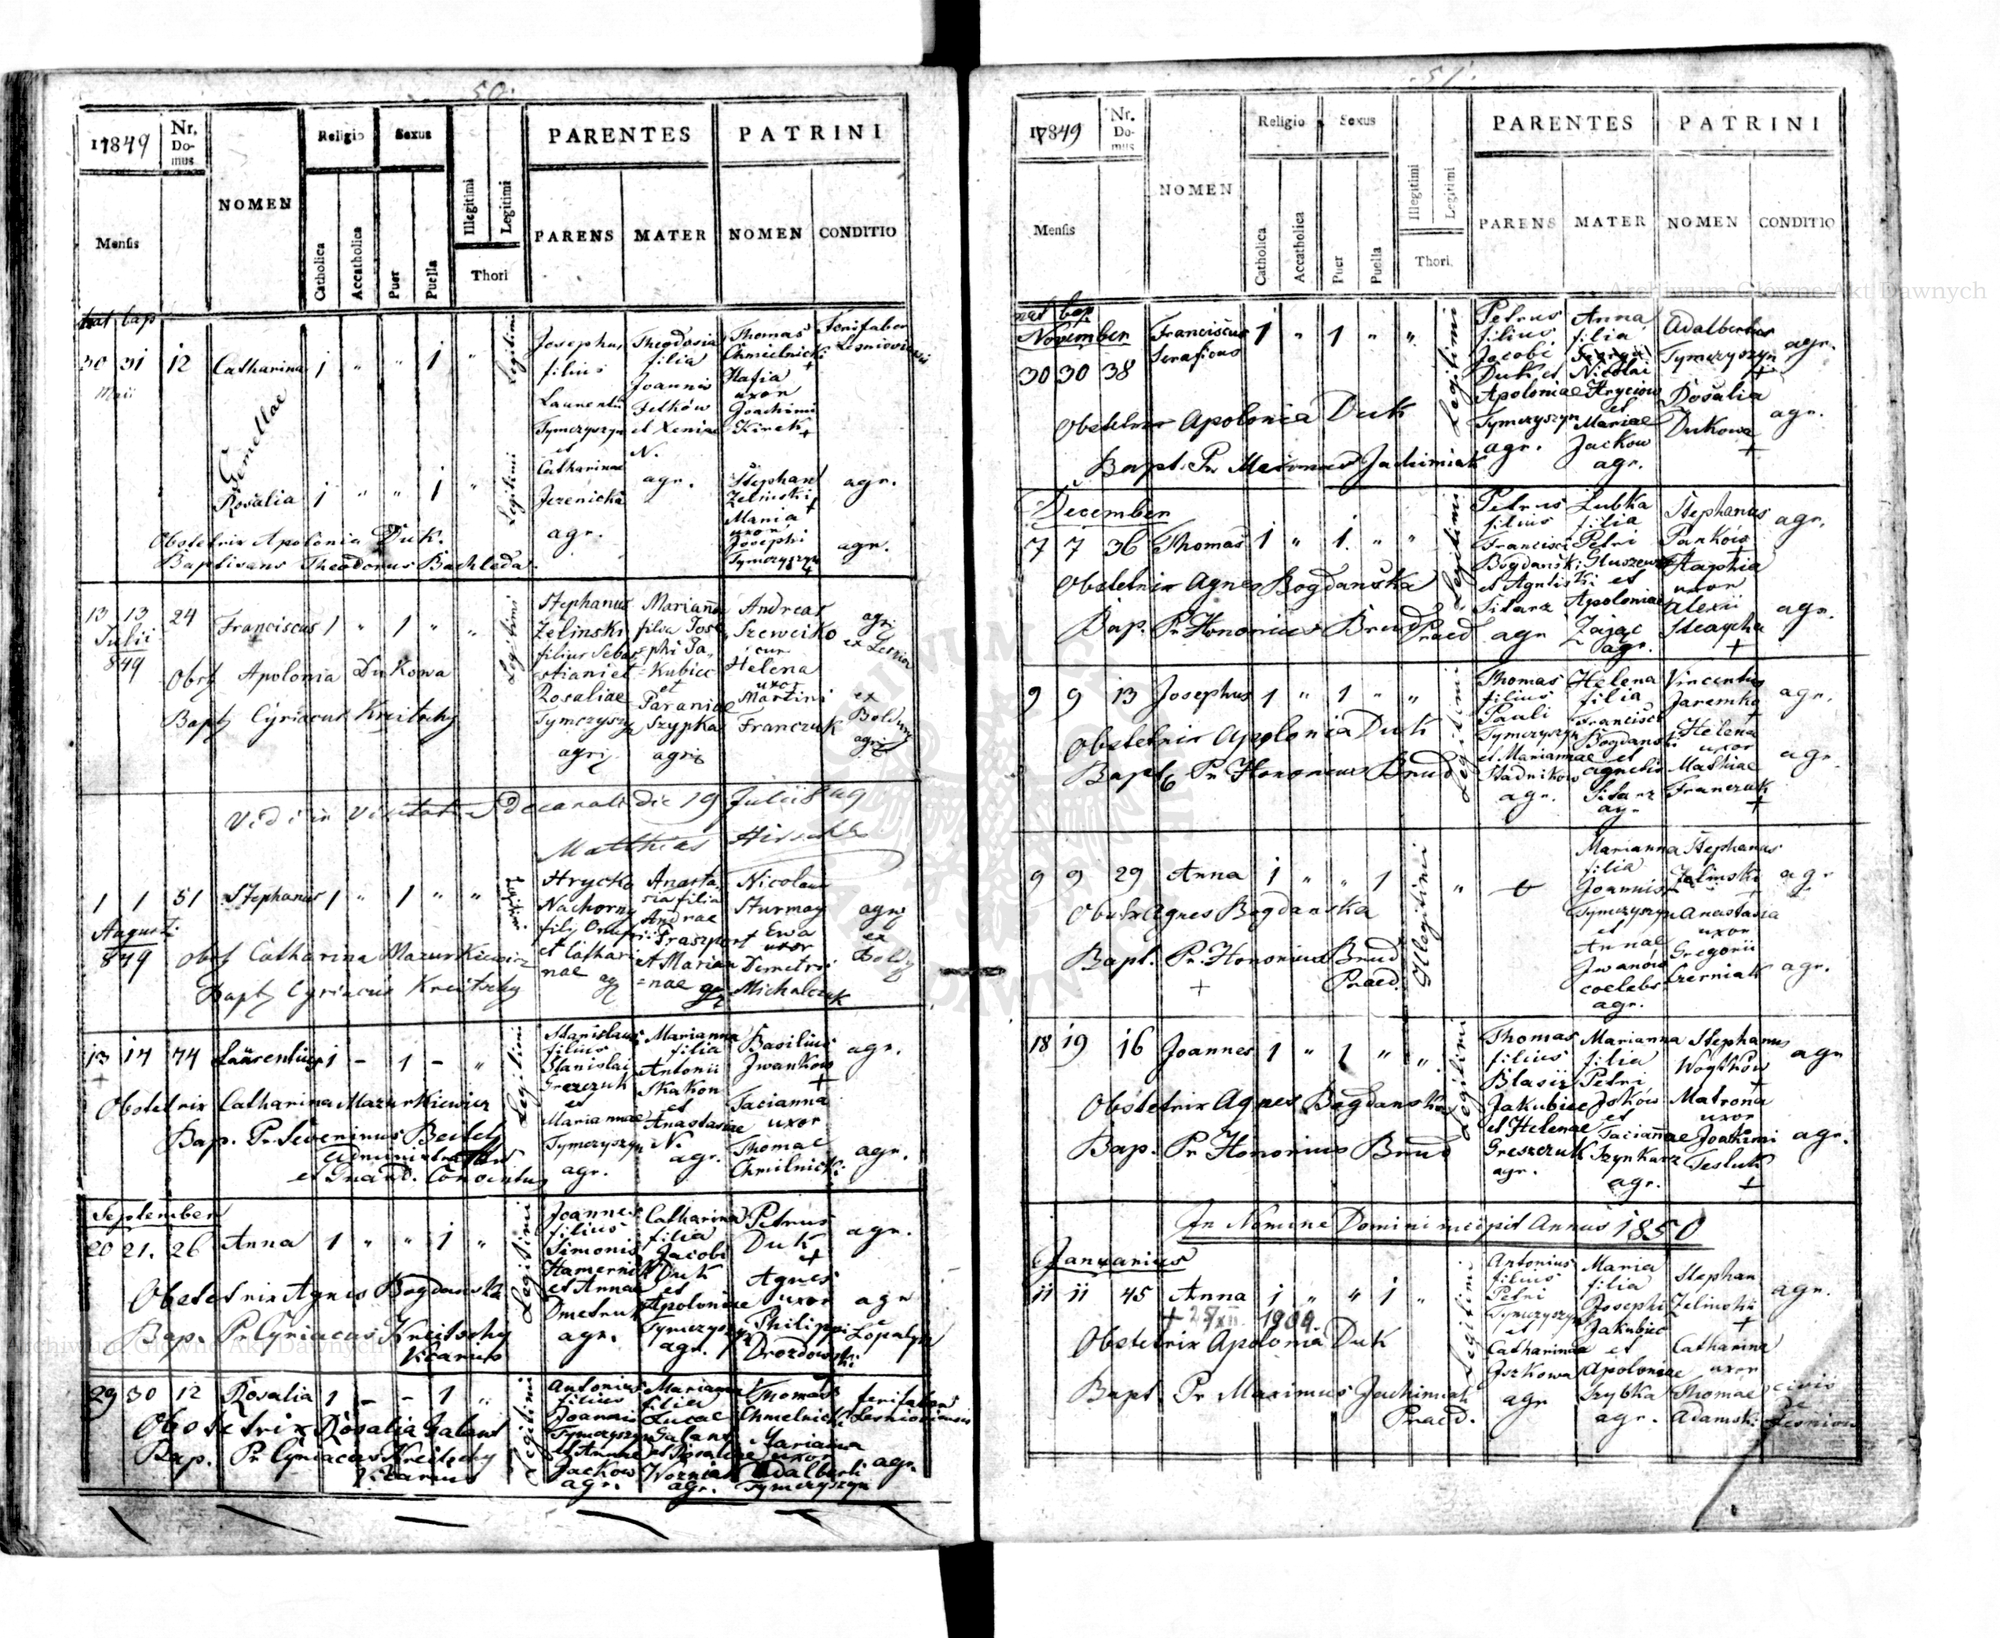 50.
17849
Nr. Do-mus
NOMEN
Religio
Sexus
PARENTES
PATRINI
Mensis
Catholica
Accatholica
Puer
Puella
Illegitimi
Legitimi
Thori
PARENS
MATER
NOMEN
CONDITIO
nat bap
30 31 12 Catharina 1 " " 1 "
Maii
Legitimi
Josephus
filius
Laurentii
Tymczyszyn
et
Catharinae
agr.
Theodosia
filia
Joannis
et Xeniae
N.
agr.
Thomas
Chmielnicki
+
uxor
Joachimi
Gemellae
Rosalia 1 " " 1 "
Legitimi
Stephan
Zelinski
+
agr.
Maria
uxor
Josephi
Tymczyszyn
+
agr.
Obstetrix Apolonia Duk.
Baptisans Theodorus Bachleda
13 13 24 Franciscus 1 " 1 " "
Julii
849
Legitimi
Stephanus
Zelinski
filius Sebas
stiani et
Rosaliae
Tymczyszyn
agr
Marianna
filia Jose
phi Ja
=Kubiec
et
Paraniae
Szypka
agr
Andreas
Szewciko
cur
Helena
uxor
Martini
Franczuk
Obst Apolonia Dukowa
Bapt Cyriacus Kreitschy
Vidi in Visitat Decanali die 19 Julii 849
Matthias
1 1 51 Stephanus 1 " 1 " "
Augusti
849
Legitimi
Hrycko
Nachorny
et Cathari
nae
Anasta
sia filia
Andreae
et Marian
=nae
Nicolaus
Sturmay
Ewa
uxor
Demetri
Michalczuk
Obst Catharina Mazurkiewicz
Bapt Cyriacus Kreitschy
13 14 74 Laurentius 1 - 1 - "
+
Legitimi
Stanislaus
filius
Stanislai
et
Mariannae
Tymczyszyn
agr.
Marianna
filia
Antonii
Skakon
et
Anastasiae
N.
agr.
Basilius
Jwankow
+
agr.
Tacianna
uxor
Thomae
Chmilnicki
agr.
Obstetrix Catharina Mazurkiewicz
Bap. Pr Severinus
Administrator
et Guard. Conventus
September
20 21. 26 Anna 1 " " 1 "
Legitimi
Joannes
filius
Simonis
et Annae
Dmetruk
agr.
Catharina
filia
Jacobi
Duk
et
Apoloniae
Tymczyszyn
agr.
Petrus
Duk
+
agr.
Agnes
uxor
Philippi
Drozdowski
agr
Obstetrix Agnes Bogdanska
Bap. Pr Cyriacus Kreitschy
Vicarius
29 30 12 Rosalia 1 - - 1 "
Legitimi
Antonius
filius
Joannis
Tymczyszyn
et Annae
Jackow
agr.
Marianna
filia
Lucae
Galant
et Rosaliae
Wozniak
agr.
Thomas
Chmelnicki
Marianna
uxor
Adalberti
Tymczyszyn
agr.
Obstetrix Rosalia Galant
Bap. Pr Cyriacus Kreitschy
Vicarius
51.
17849
Nr. Do-mus
NOMEN
Religio
Sexus
PARENTES
PATRINI
Mensis
Catholica
Accatholica
Puer
Puella
Illegitimi
Legitimi
Thori.
PARENS
MATER
NOMEN
CONDITIO
nat bap
November
30 30 38 Franciscus 1 " 1 " "
Seraficus
Legitimi
Petrus
filius
Jacobi
Duk et
Apoloniae
Tymczyszyn
agr.
Anna
filia
Nicolai
Hryciow
et
Mariae
Jackow
agr.
Adalbertus
Tymczyszyn
+
agr.
Rosalia
Dukowa
+
agr.
Obstetrix Apolonia Duk
Bapt. Pr Maximus Jachimiak
December
7 7 36 Thomas 1 " 1. " "
Legitimi
Petrus
filius
Francisci
Bogdanski
et Agnetis
Sitarz
agr
Lubka
filia
Petri
et
Apoloniae
Zając
agr.
Stephanus
Pankow
+
agr.
uxor
Alexii
+
agr.
Obstetrix Agnes Bogdanska
Bap. Pr Honorius Brud Praed
9 9 13 Josephus 1 " 1 " "
Legitimi
Thomas
filius
Pauli
Tymczyszyn
et Mariannae
Stadnikow
agr.
Helena
filia
Francisci
Bogdanski
et
Agnetis
Sitarz
agr
Vincentus
Jaremko
+
agr.
Helena
uxor
Mathiae
Franczuk
+
agr.
Obstetrix Apolonia Duk
Bapt Pr Honorius Brud
9 9 29 Anna 1 " " 1 "
Illegitimi
Marianna
filia
Joannis
Tymczyszyn
et
Annae
Jwanow
coelebs
agr.
Stephanus
Zelinski
agr
Anastasia
uxor
Gregorii
Czerniak
agr.
Obstetrx Agnes Bogdanska
Bapt. Pr Honorius Brud
+ Praed.
18 19 16 Joannes 1 " 1 " "
Legitimi
Thomas
filius
Blasii
Jakubiec
et Helenae
Greszczuk
agr.
Marianna
filia
Petri
et
Taciannae
Szynkarz
agr.
Stephanus
+
agr
Matrona
uxor
Joakimi
Tesluk
+
agr.
Obstetrix Agnes Bogdanska
Bap. Pr Honorius Brud
In Nomine Domini incipit Annus 1850
Januarius
11 11 45 Anna 1 " " 1 "
1909.
Legitimi
Antonius
filius
Petri
Tymczyszyn
et
Catharinae
Jszkowa
agr
Maria
filia
Josephi
Jakubiec
et
Apoloniae
Szybka
agr.
Stephan
Zelinski
+
agr.
Catharina
uxor
Thomae
Adamski
civis
Obstetrix Apolonia Duk
Bapt. Pr Maximus Jachimiak
Praed.
Archiwum Główne Akt Dawnych
Archiwum Główne Akt Dawnych